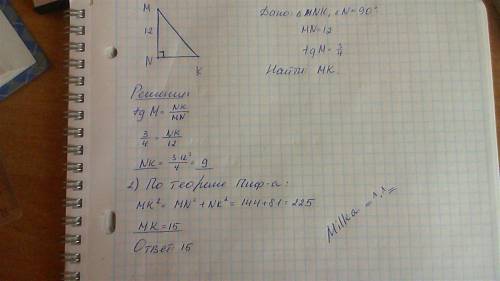 M
12
N
K
Дано: △MNK, ∠N=90°
MN=12
tg M = 3/4
Найти MK.
Решение
tg M = NK/MN
3/4 = NK/12
NK = 3·12³/4 = 9
2) По теореме Пиф-а:
MK² = MN² + NK² = 144+81=225
MK=15
Ответ: 15
Milka =^.^=